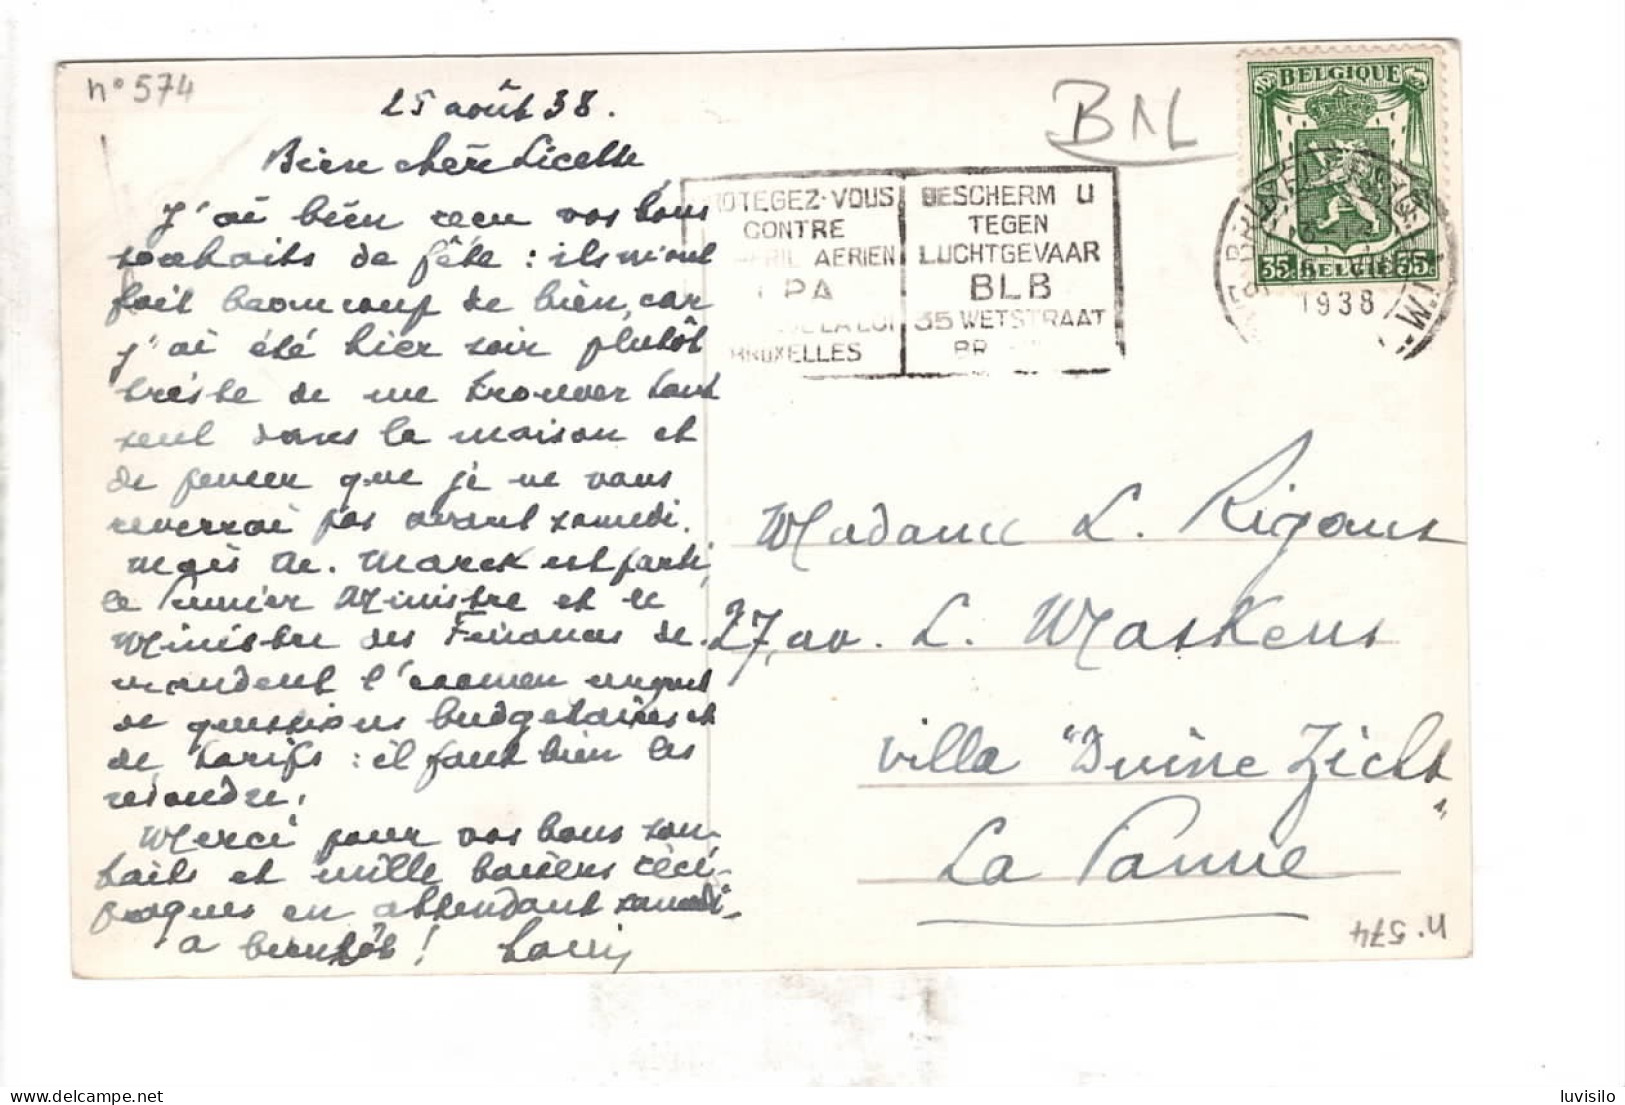 n° 574
25 août 38.
Bien chère Licette
J'ai bien recu vos bons
souhaits de fête : ils m'ont
fait beaucoup de bien, car
j'ai été hier soir plutôt
triste de me trouver tout
seul dans la maison et
de penser que je ne vous
reverrai pas avant samedi.
Mais M. Marck est parti,
le Premier Ministre et le
Ministre des Finances de-
mandent l'examen urgent
de questions budgetaires et
de tarifs : il faut bien les
resoudre.
Merci pour vos bons sou-
haits et mille baisers réci-
proques en attendant samedi,
a bientôt ! Louis
BNL
OTEGEZ-VOUS
CONTRE
RIL AERIEN
PA
DE LA LOI
BRUXELLES
BESCHERM U
TEGEN
LUCHTGEVAAR
BLB
35 WETSTRAAT
BR
BELGIQUE
35 BELGIE 35
1938
Madame L. Rigaux
27, av. L. Maskens
villa "Duine Zicht"
La Panne
n° 574
delcampe.net
luvisilo